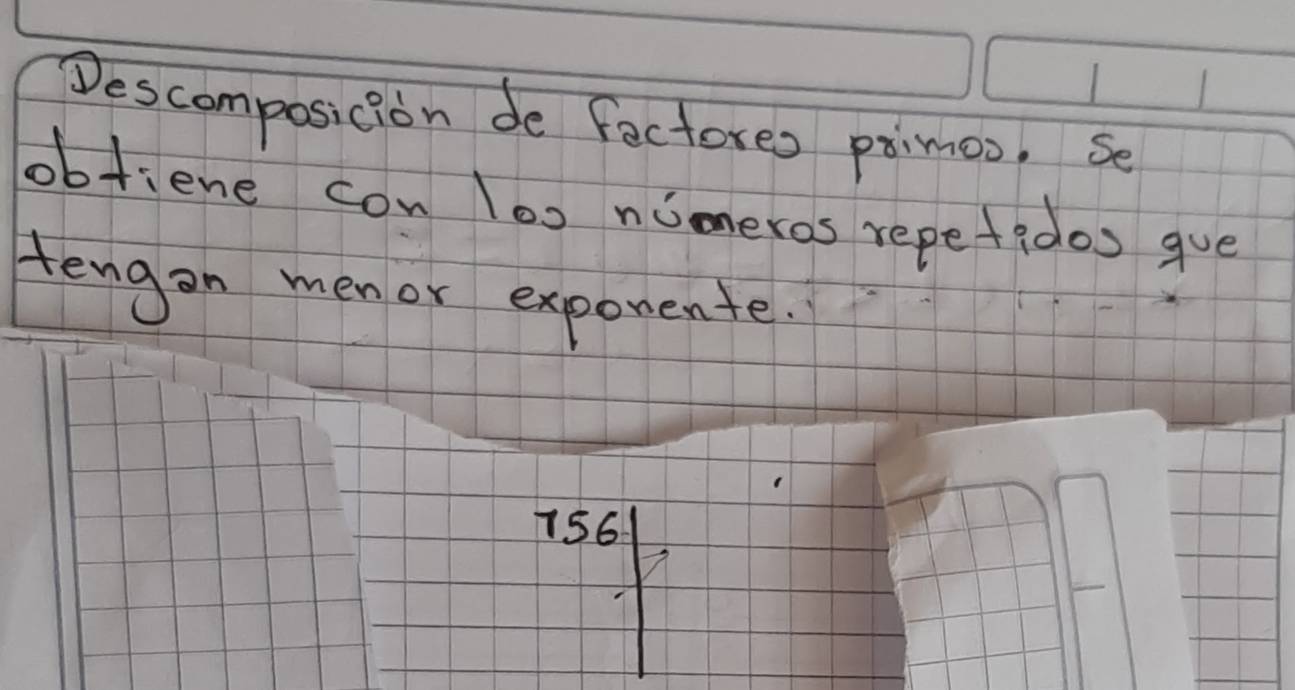 Descomposición de factores primos. Se
obtiene con los números repetidos que
tengan menor exponente.
756